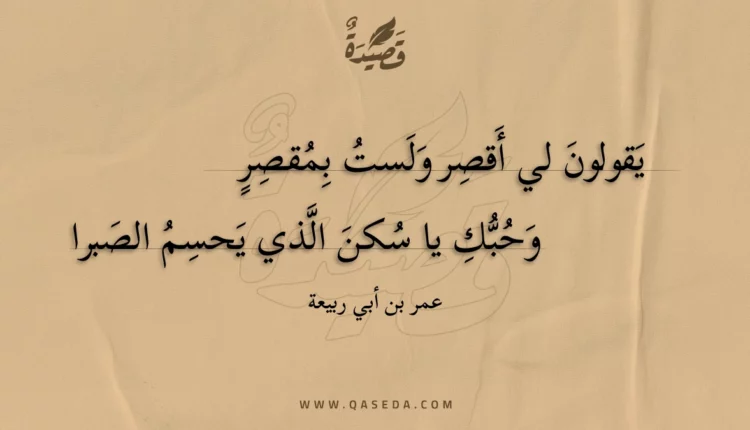 قَصِيْدَةٌ
يَقولونَ لي أَقصِر وَلَستُ بِمُقصِرٍ
وَحُبُّكِ يا سُكنَ الَّذي يَحسِمُ الصَبرا
عمر بن أبي ربيعة
WWW.QASEDA.COM